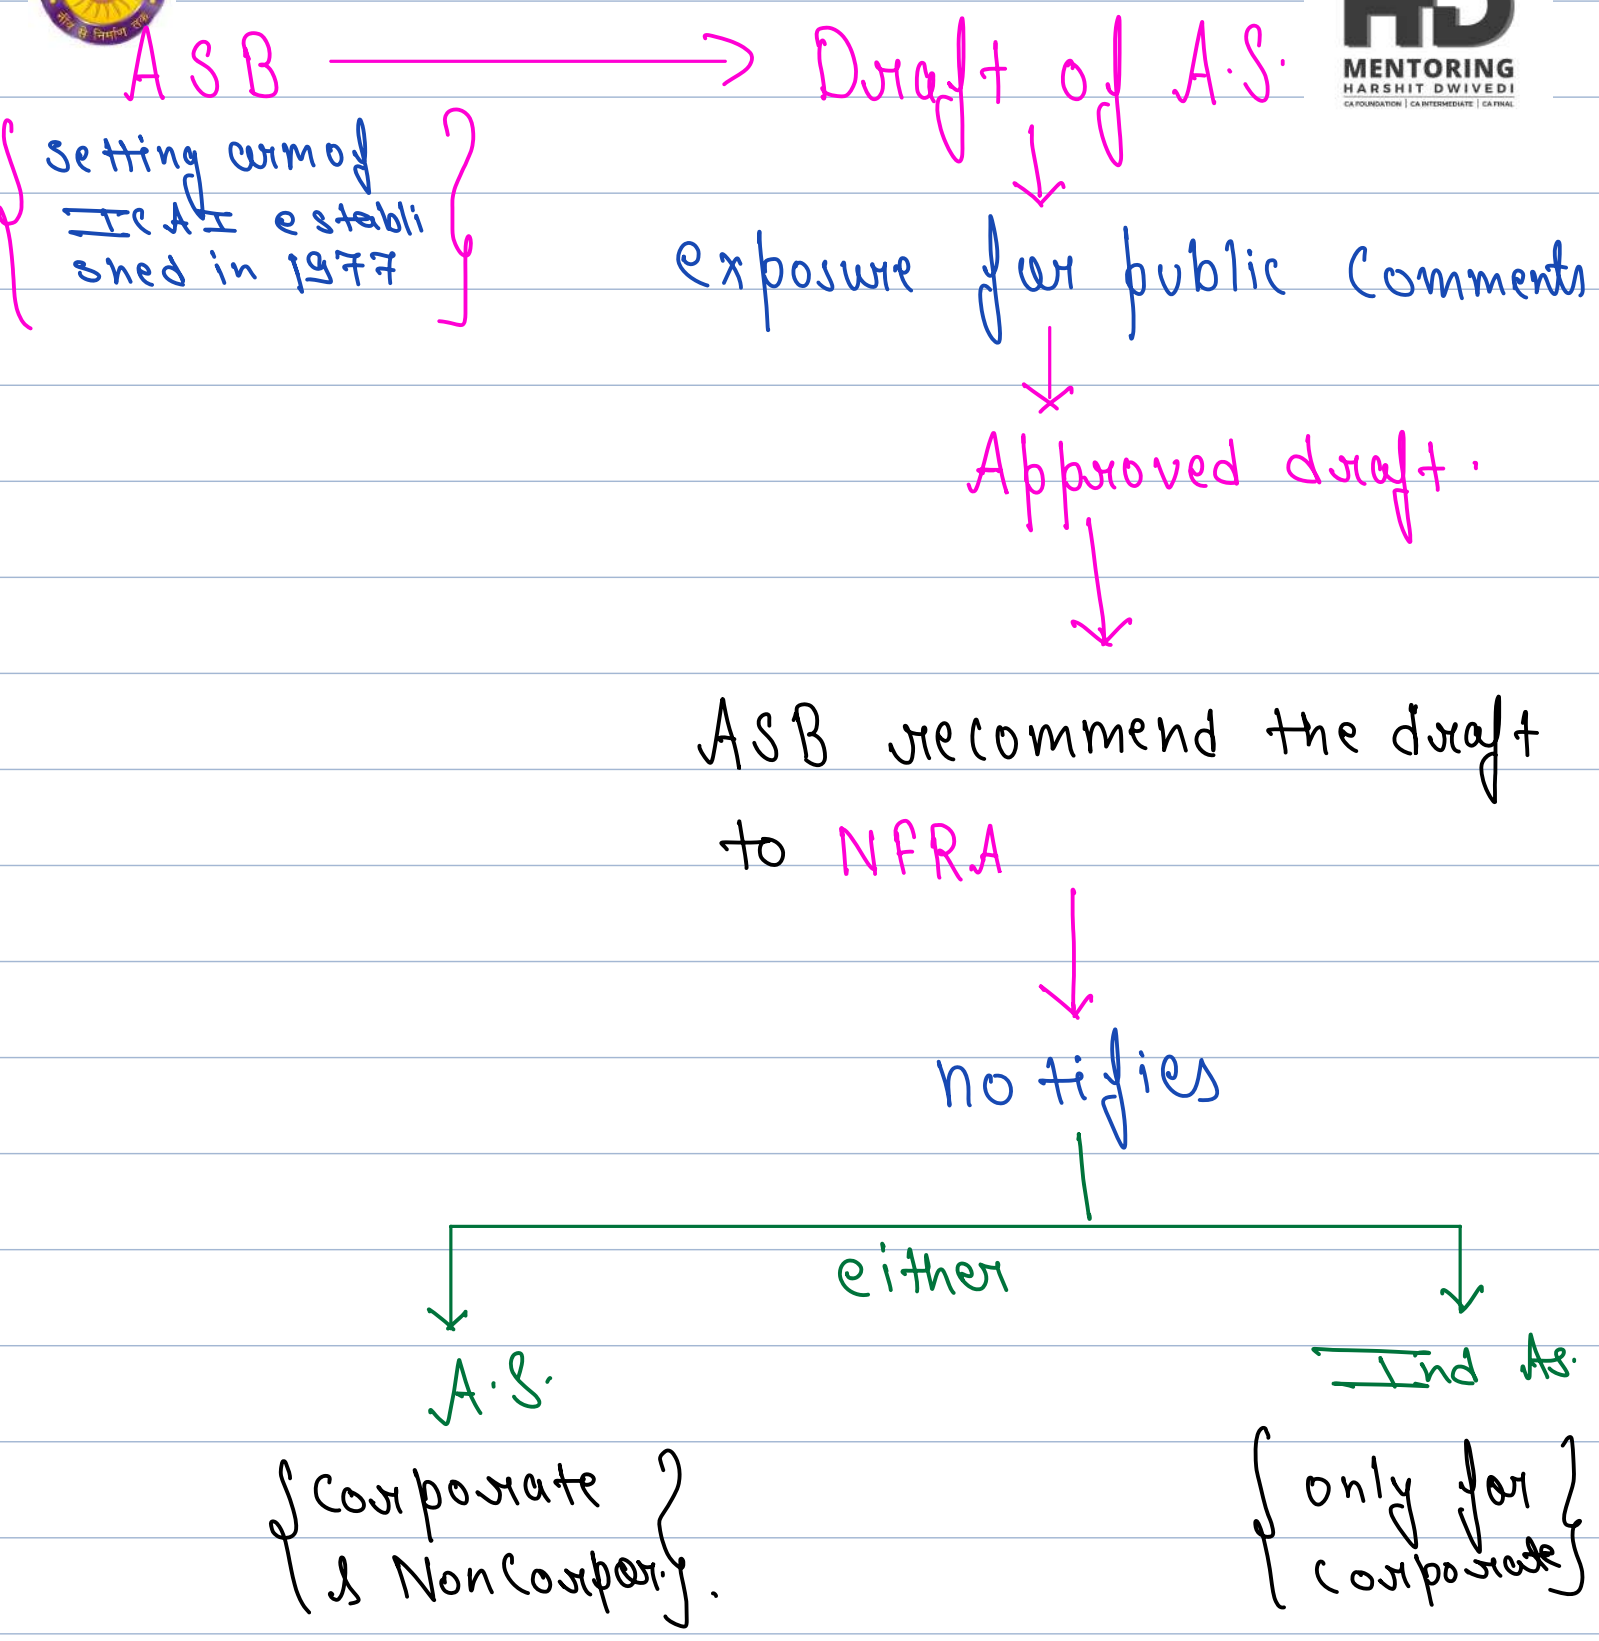 नींव से निर्माण तक
HD
MENTORING
HARSHIT DWIVEDI
CA FOUNDATION | CA INTERMEDIATE | CA FINAL
ASB → Draft of A.S.
setting arm of
ICAI establi
shed in 1977
exposure for public comments
Approved draft.
ASB recommend the draft
to NFRA
notifies
either
A.S.
Ind As.
{ corporate
& NonCorpor. } .
{ only for
corporate }